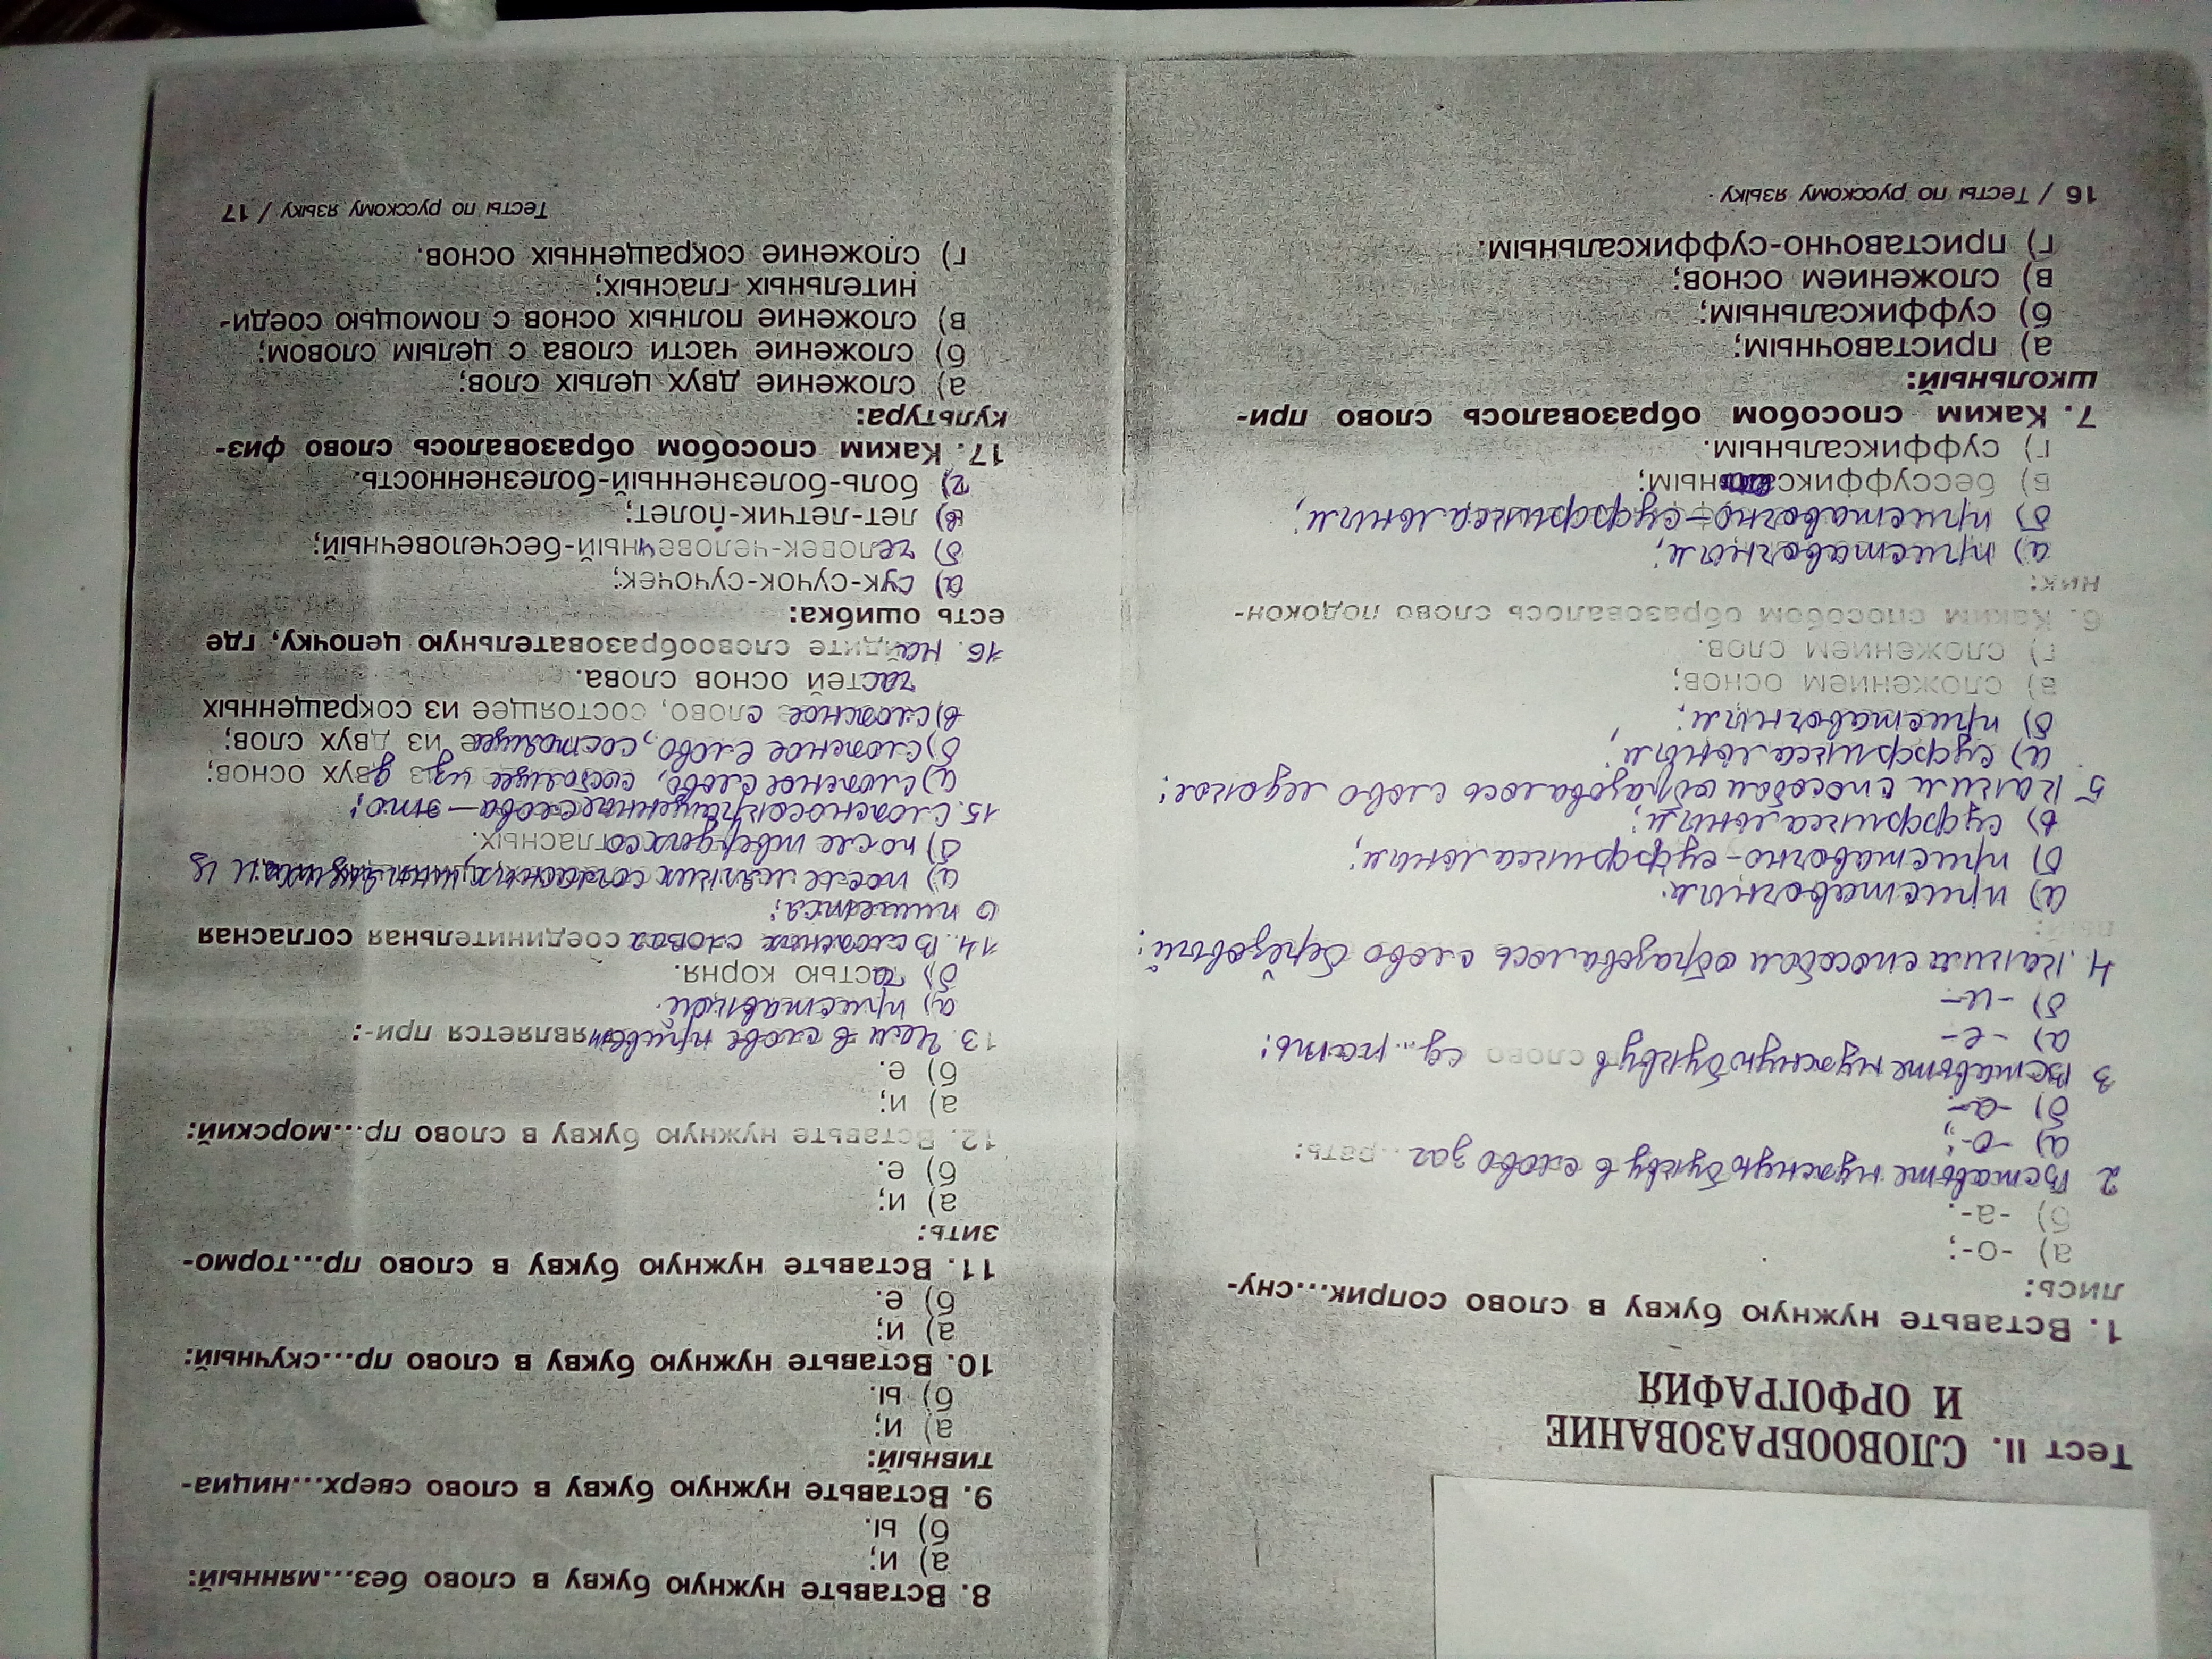 Тест II. СЛОВООБРАЗОВАНИЕ
И ОРФОГРАФИЯ
1. Вставьте нужную букву в слово соприк...сну-
лись:
а) -о-;
б) -а-.
2 Вставьте нужную букву в слово заг...рать:
а) -о-;
б) -а-
3 Вставьте нужную букву в слово сд...рать:
а) -е-
б) -и-
4. Каким способом образовалось слово берёзовый:
вый:
а) приставочным.
б) приставочно-суффиксальным;
в) суффиксальным;
5 Каким способом образовалось слово ледокол:
а) суффиксальным;
б) приставочным;
в) сложением основ;
г) сложением слов.
6. Каким способом образовалось слово подокон-
ник:
а) приставочным;
б) приставочно-суффиксальным;
в) бессуффиксным;
г) суффиксальным.
7. Каким способом образовалось слово при-
школьный:
а) приставочным;
б) суффиксальным;
в) сложением основ;
г) приставочно-суффиксальным.
16 / Тесты по русскому языку
8. Вставьте нужную букву в слово без...мянный:
а) и;
б) ы.
9. Вставьте нужную букву в слово сверх...нициа-
тивный:
а) и;
б) ы.
10. Вставьте нужную букву в слово пр...скучный:
а) и;
б) е.
11. Вставьте нужную букву в слово пр...тормо-
зить:
а) и;
б) е.
12. Вставьте нужную букву в слово пр...морский:
а) и;
б) е.
13 Чем в слове является при-:
а) приставкой.
б) частью корня.
14. В сложных словах соединительная согласная
о пишется:
а) после мягких согласных, шипящих и ц
б) после твердых согласных.
15. Сложносокращенные слова - это:
а) сложное слово, состоящее из двух основ;
б) сложное слово, состоящее из двух слов;
в) сложное слово, состоящее из сокращенных
частей основ слова.
16. Найдите словообразовательную цепочку, где
есть ошибка:
а) сук-сучок-сучочек;
б) человек-человечный-бесчеловечный;
в) лет-летчик-полет;
г) боль-болезненный-болезненность.
17. Каким способом образовалось слово физ-
культура:
а) сложение двух целых слов;
б) сложение части слова с целым словом;
в) сложение полных основ с помощью соеди-
нительных гласных;
г) сложение сокращенных основ.
Тесты по русскому языку / 17